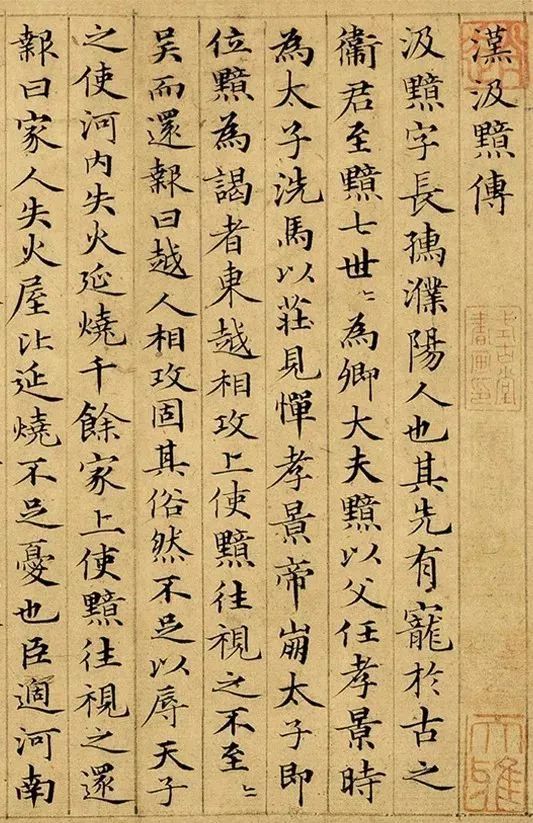 漢汲黯傳
汲黯字長孺濮陽人也其先有寵於古之
衛君至黯七世〻為卿大夫黯以父任孝景時
為太子洗馬以莊見憚孝景帝崩太子即
位黯為謁者東越相攻上使黯往視之不至〻
吳而還報曰越人相攻固其俗然不足以辱天子
之使河內失火延燒千餘家上使黯往視之還
報曰家人失火屋比延燒不足憂也臣適河南
式古堂
書畫印
大雅